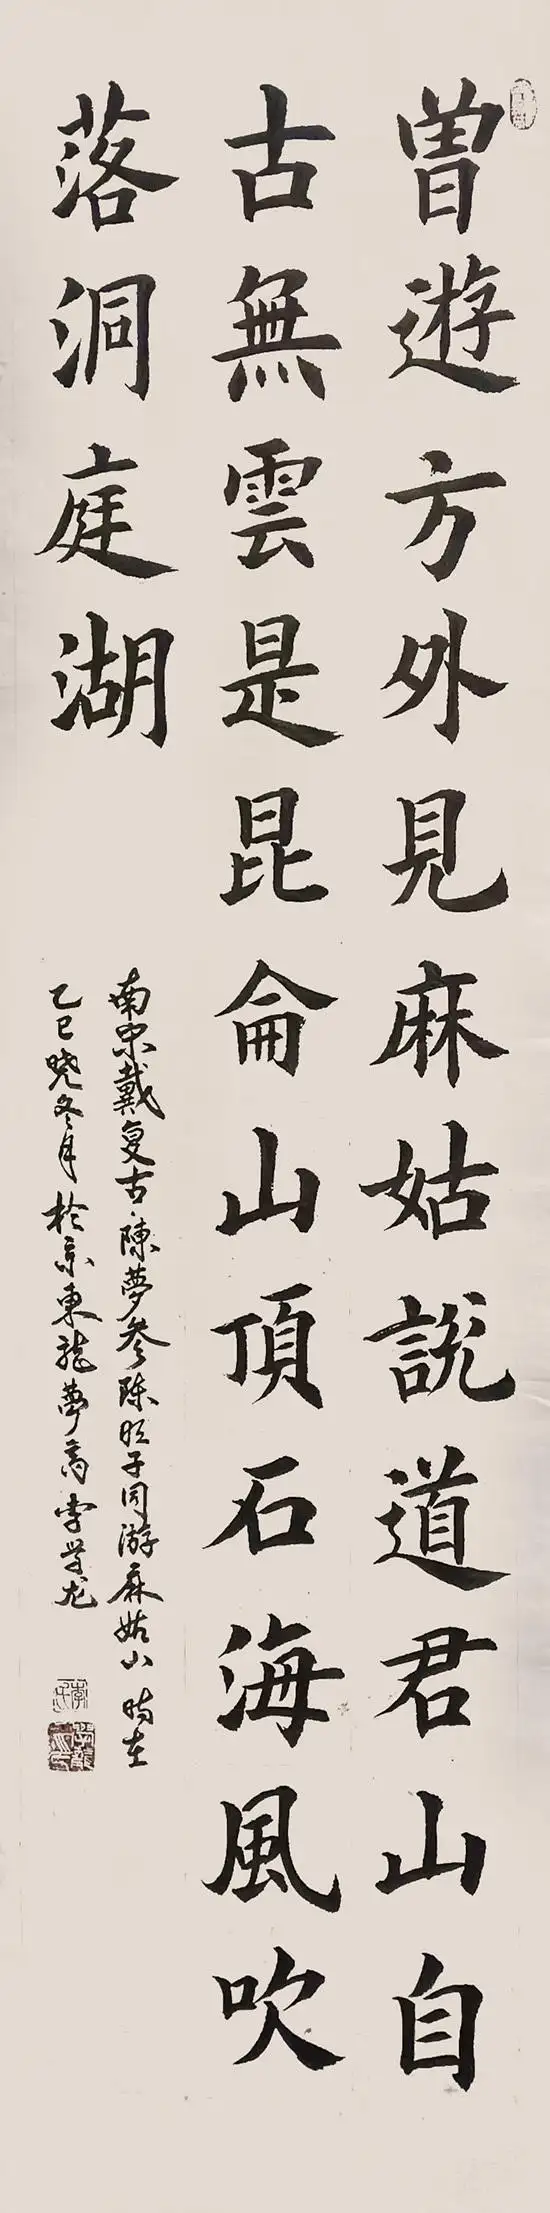 曾遊方外見麻姑說道君山自
古無雲是昆侖山頂石海風吹
落洞庭湖
南宋戴复古·陳夢參陈旺子同游麻姑山 時在
乙巳晓冬月於京東龍夢斋李学龙